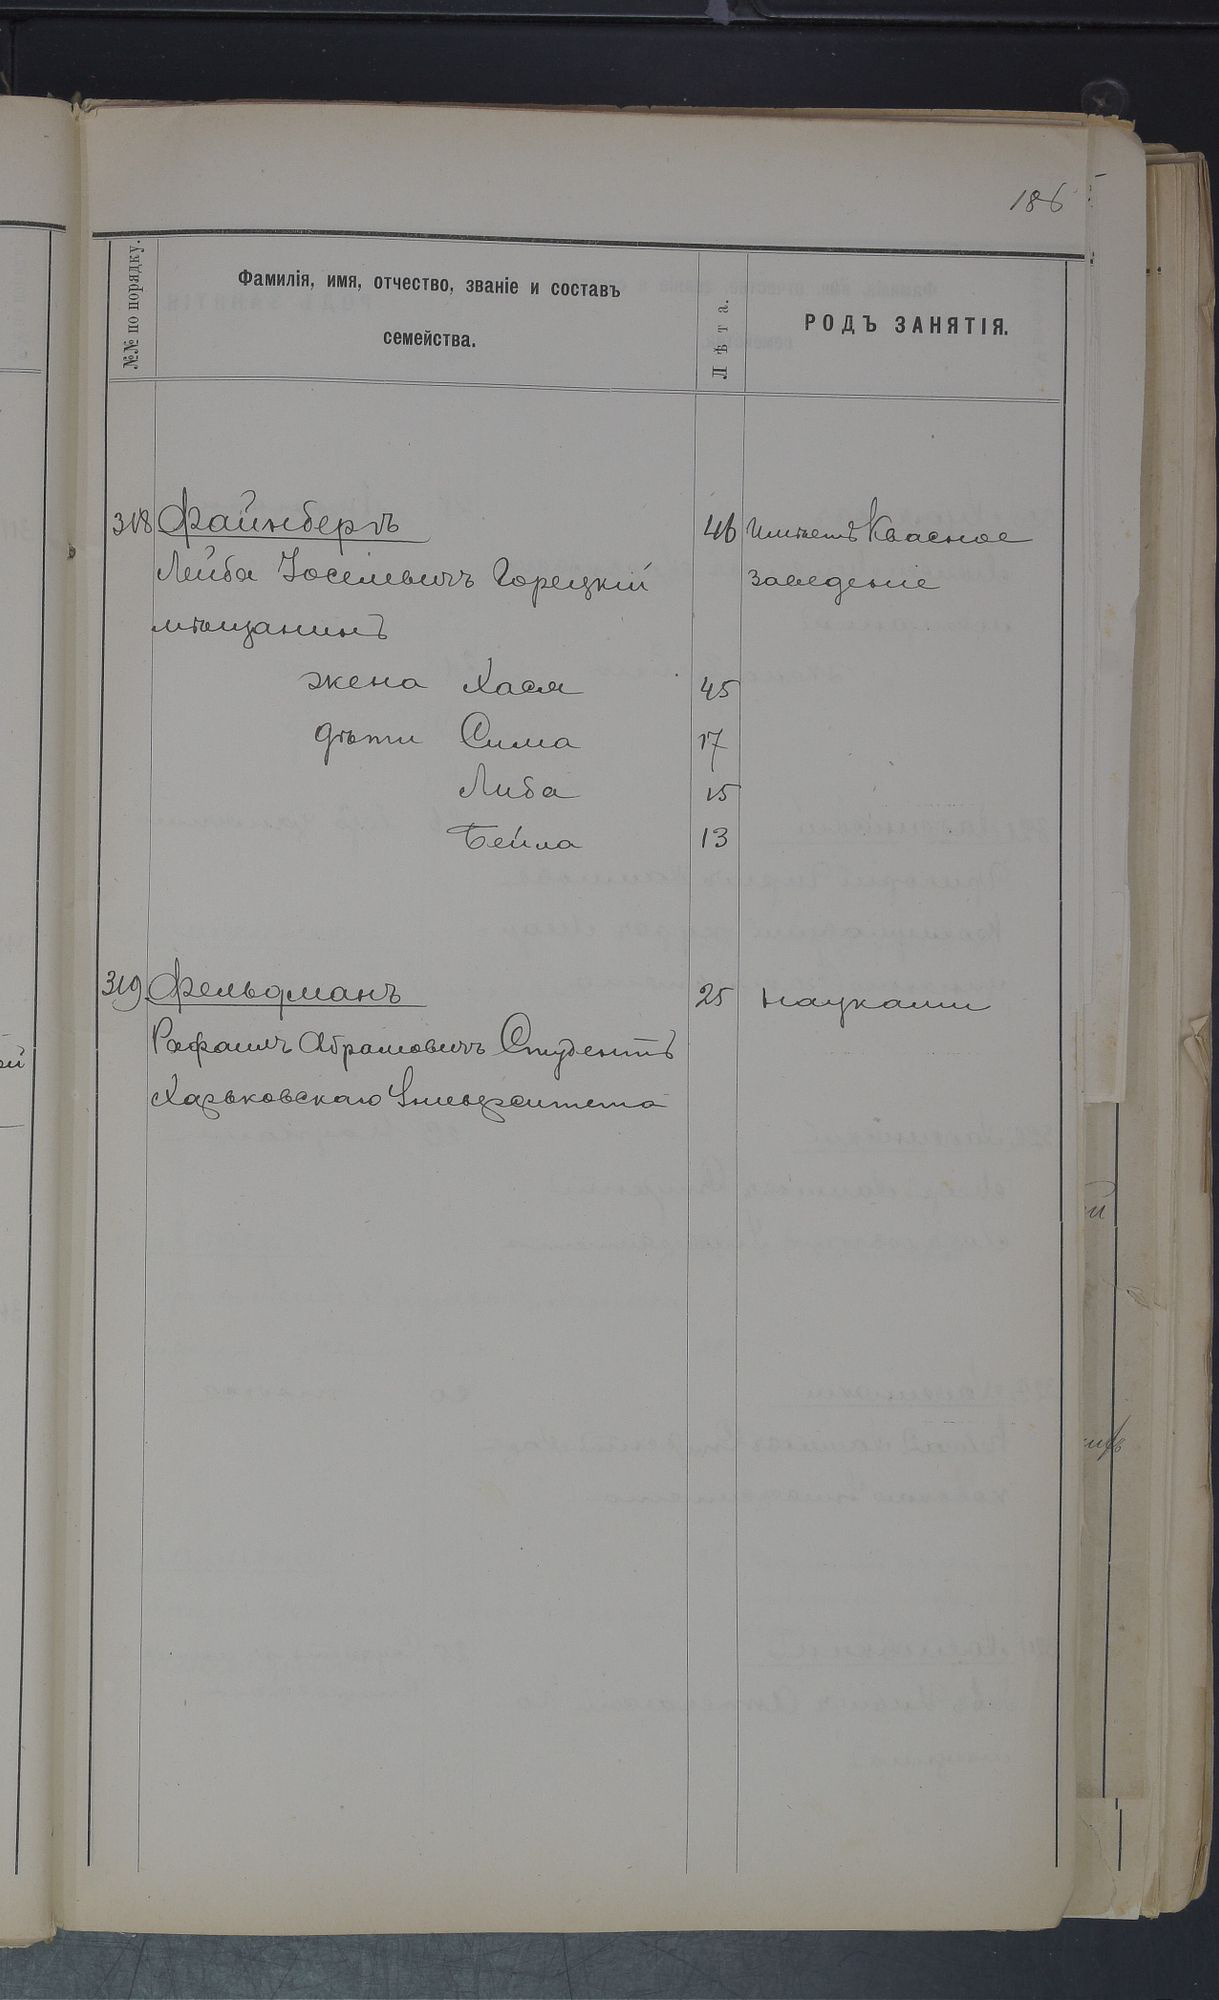 186
№№ по порядку.
Фамилія, имя, отчество, званіе и составъ
семейства.
Лѣта.
РОДЪ ЗАНЯТІЯ.
318 Файнбергъ 46 Имѣетъ Квасное
Лейба Іоселевичъ Горецкій заведеніе
мѣщанинъ
жена Хася 45
дѣти Сима 17
Либа 15
Бейла 13
319 Фельдманъ 25 науками
Рафаилъ Абрамовичъ Студентъ
Харьковскаго Университета